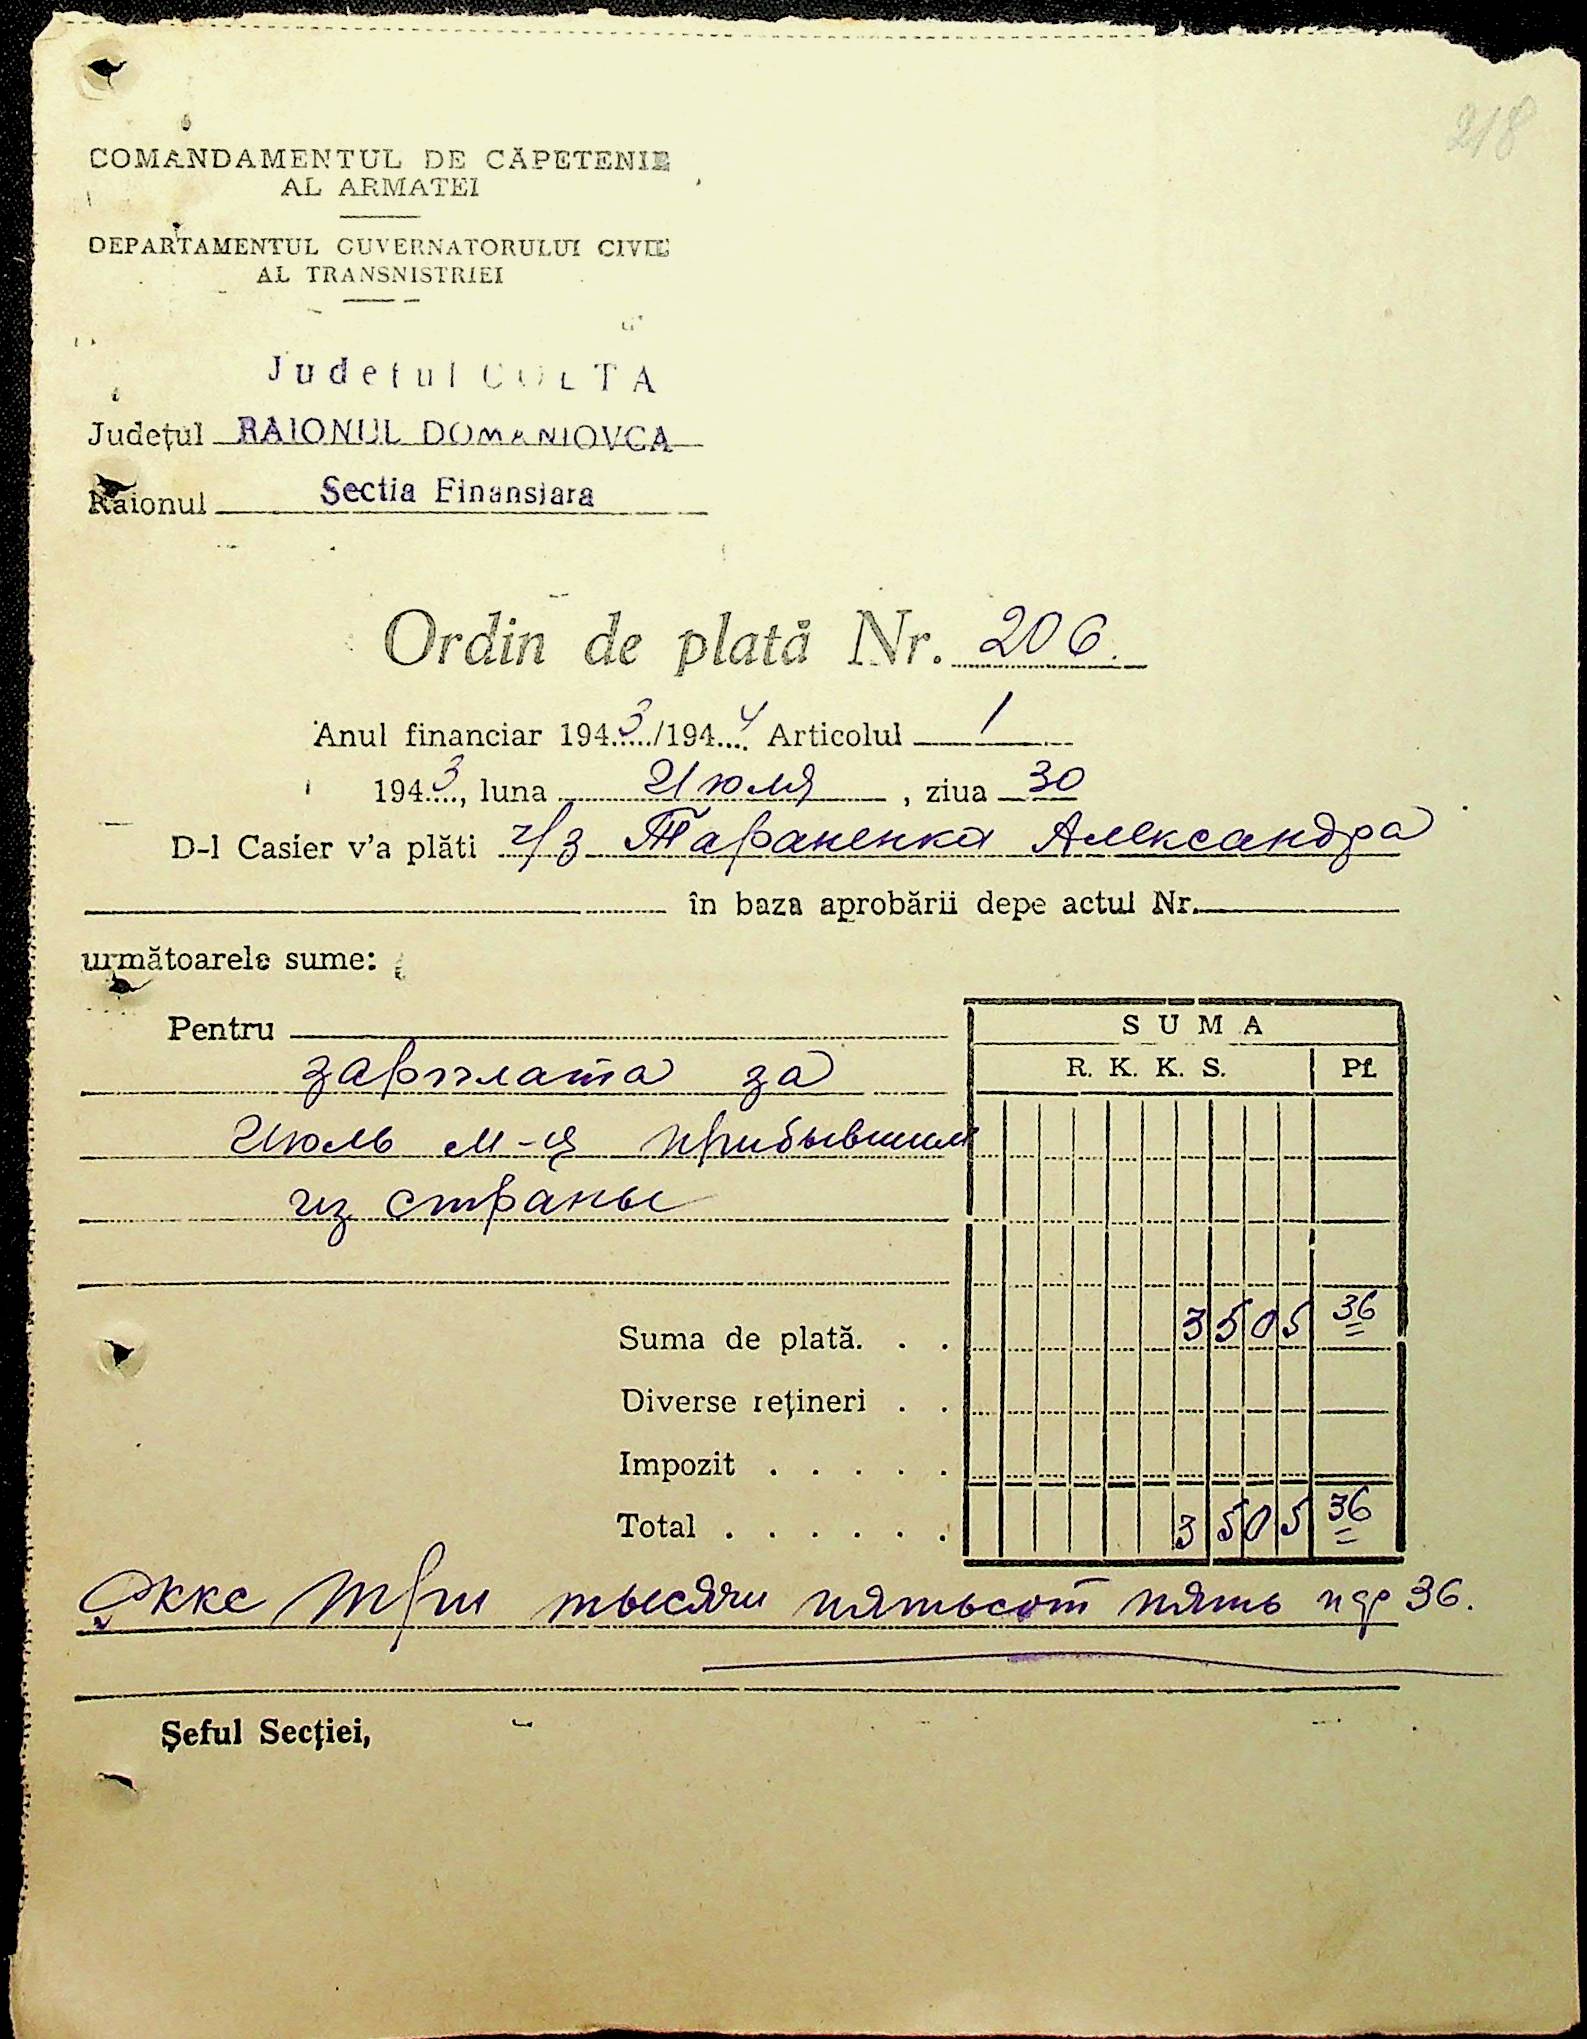 218
COMANDAMENTUL DE CĂPETENIE
AL ARMATEI
DEPARTAMENTUL GUVERNATORULUI CIVIL
AL TRANSNISTRIEI
Judetul GOLTA
Județul RAIONUL DOMANIOVCA
Raionul Sectia Finansiara
Ordin de plată Nr. 206.
Anul financiar 1943/1944 Articolul 1
1943, luna Июля, ziua 30
D-l Casier v'a plăti ч/з Тараненко Александра
în baza aprobării depe actul Nr.
următoarele sume:
Pentru
SUMA
R. K. K. S. Pf.
зарплата за
Июль м-ц прибывшим
из страны
Suma de plată. . . 3505 36
Diverse rețineri . .
Impozit . . . . .
Total . . . . . . 3505 36
Рккс Три тысячи пятьсот пять 36.
Șeful Secției,